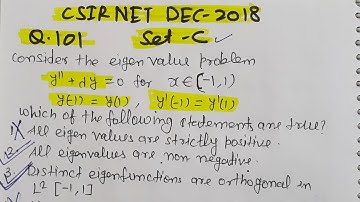 CSIR NET DEC-2018
Q.101 Set-C ✓
Consider the eigen value problem
y'' + λy = 0 for x ∈ (-1,1)
y(-1) = y(1), y'(-1) = y'(1)
Which of the following statements are true?
1. All eigen values are strictly positive.
2. All eigenvalues are non negative.
3. Distinct eigenfunctions are orthogonal in
L² [-1,1]